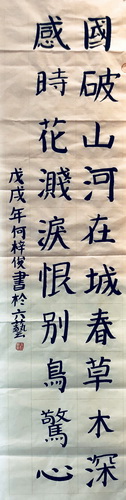 國破山河在城春草木深
感時花濺淚恨別鳥驚心
戊戌年何梓俊書於六藝